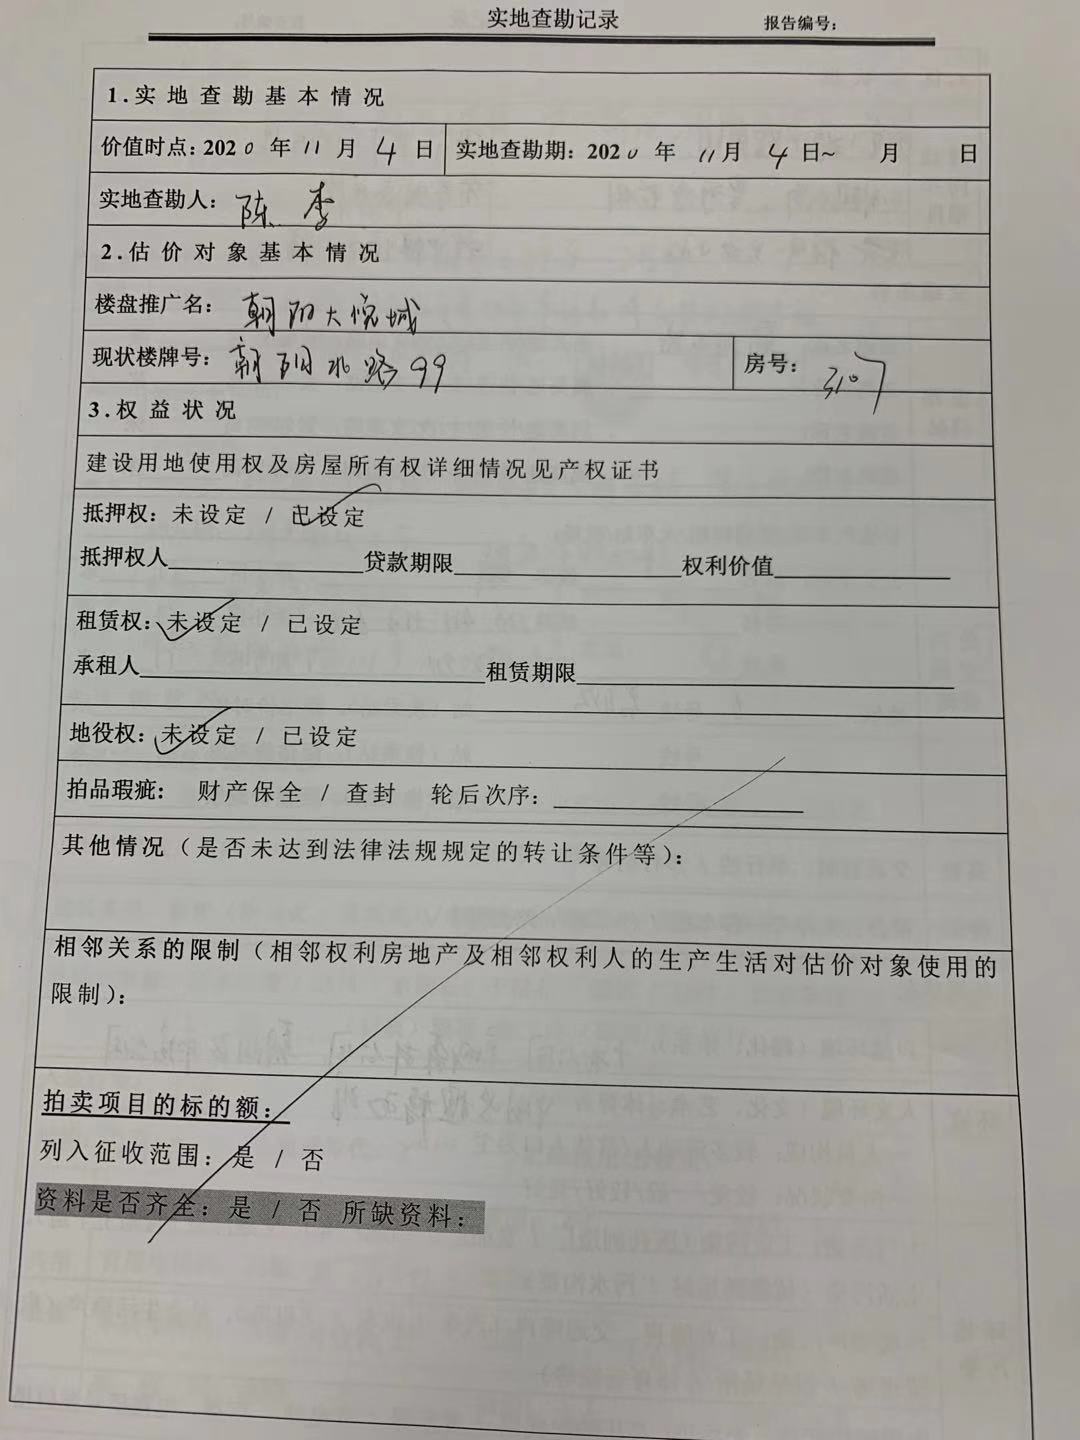 实地查勘记录 报告编号：
1.实地查勘基本情况
价值时点：2020 年 11 月 4 日 实地查勘期：2020 年 11月 4 日~ 月 日
实地查勘人： 陈 李
2.估价对象基本情况
楼盘推广名： 朝阳大悦城
现状楼牌号： 朝阳北路99 房号： 3107
3.权益状况
建设用地使用权及房屋所有权详细情况见产权证书
抵押权：未设定 / 已设定
抵押权人 贷款期限 权利价值
租赁权：未设定 / 已设定
承租人 租赁期限
地役权：未设定 / 已设定
拍品瑕疵： 财产保全 / 查封 轮后次序：
其他情况（是否未达到法律法规规定的转让条件等）：
相邻关系的限制（相邻权利房地产及相邻权利人的生产生活对估价对象使用的
限制）：
拍卖项目的标的额：
列入征收范围：是 / 否
资料是否齐全：是 / 否 所缺资料：